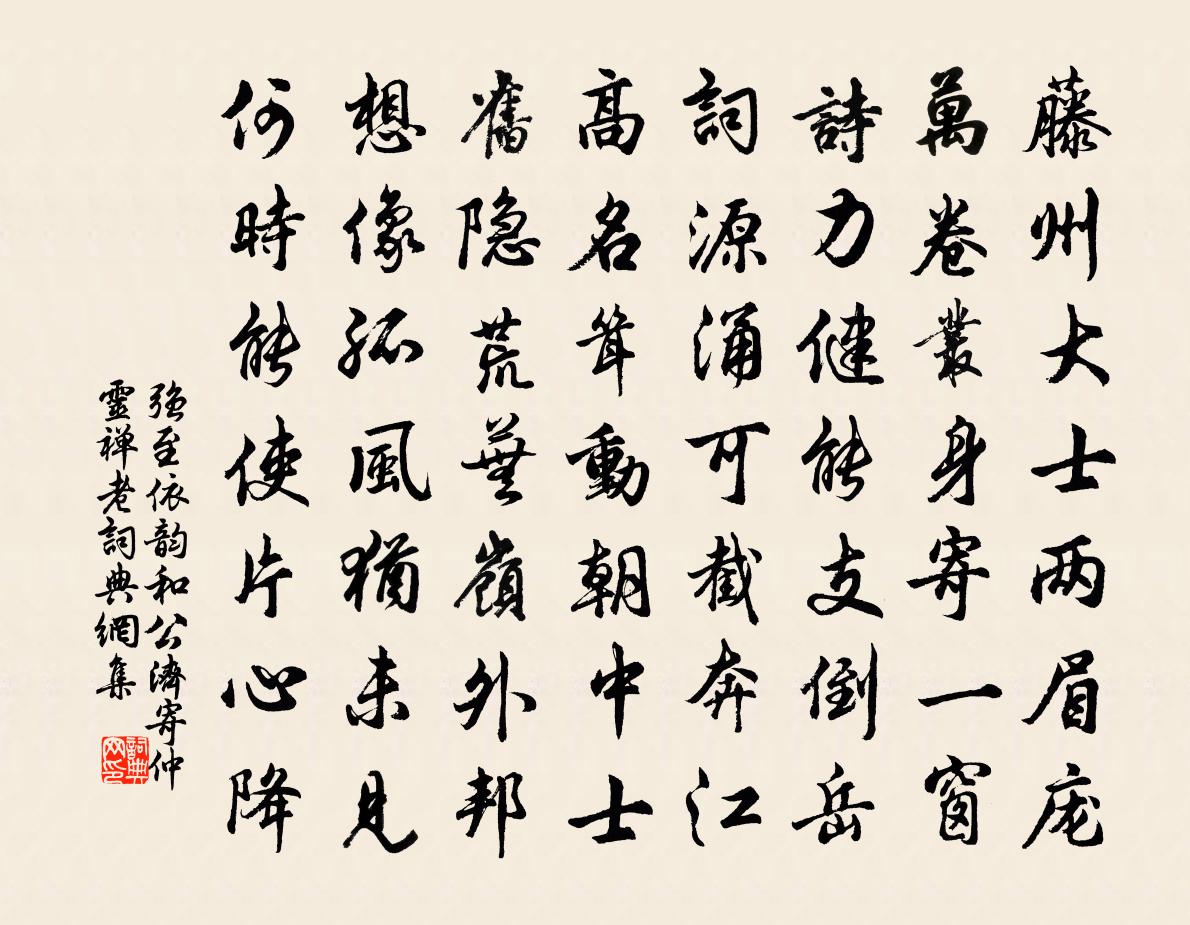 藤州大士两眉庞
萬卷叢身寄一窗
詩力健能支倒岳
詞源涌可截奔江
高名耸動朝中士
舊隐荒蕪嶺外邦
想像孤風猶未見
何時能使片心降
强至依韵和公濟寄仲
靈禅老詞典網集
詞典网印